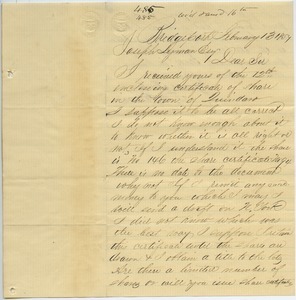 485
485
rec'd and 16th
Bridgeport February 13 1857
Joseph Lyman Esq
Dear Sir
I received yours of the 12th
enclosing certificate of share
in the town of
I suppose it to be all correct
I do not know enough about it
to know whether it is all right or
not If I understand it the share
is No 146 one share certificate
There is no date to the document
why not If I remit any more
money to you which way I
will send a draft on N York
I did not know which was
the best way. I suppose I retain
the certificate until the shares are
drawn & I obtain a title to the lots
Are there a limited number of
shares or will you issue share